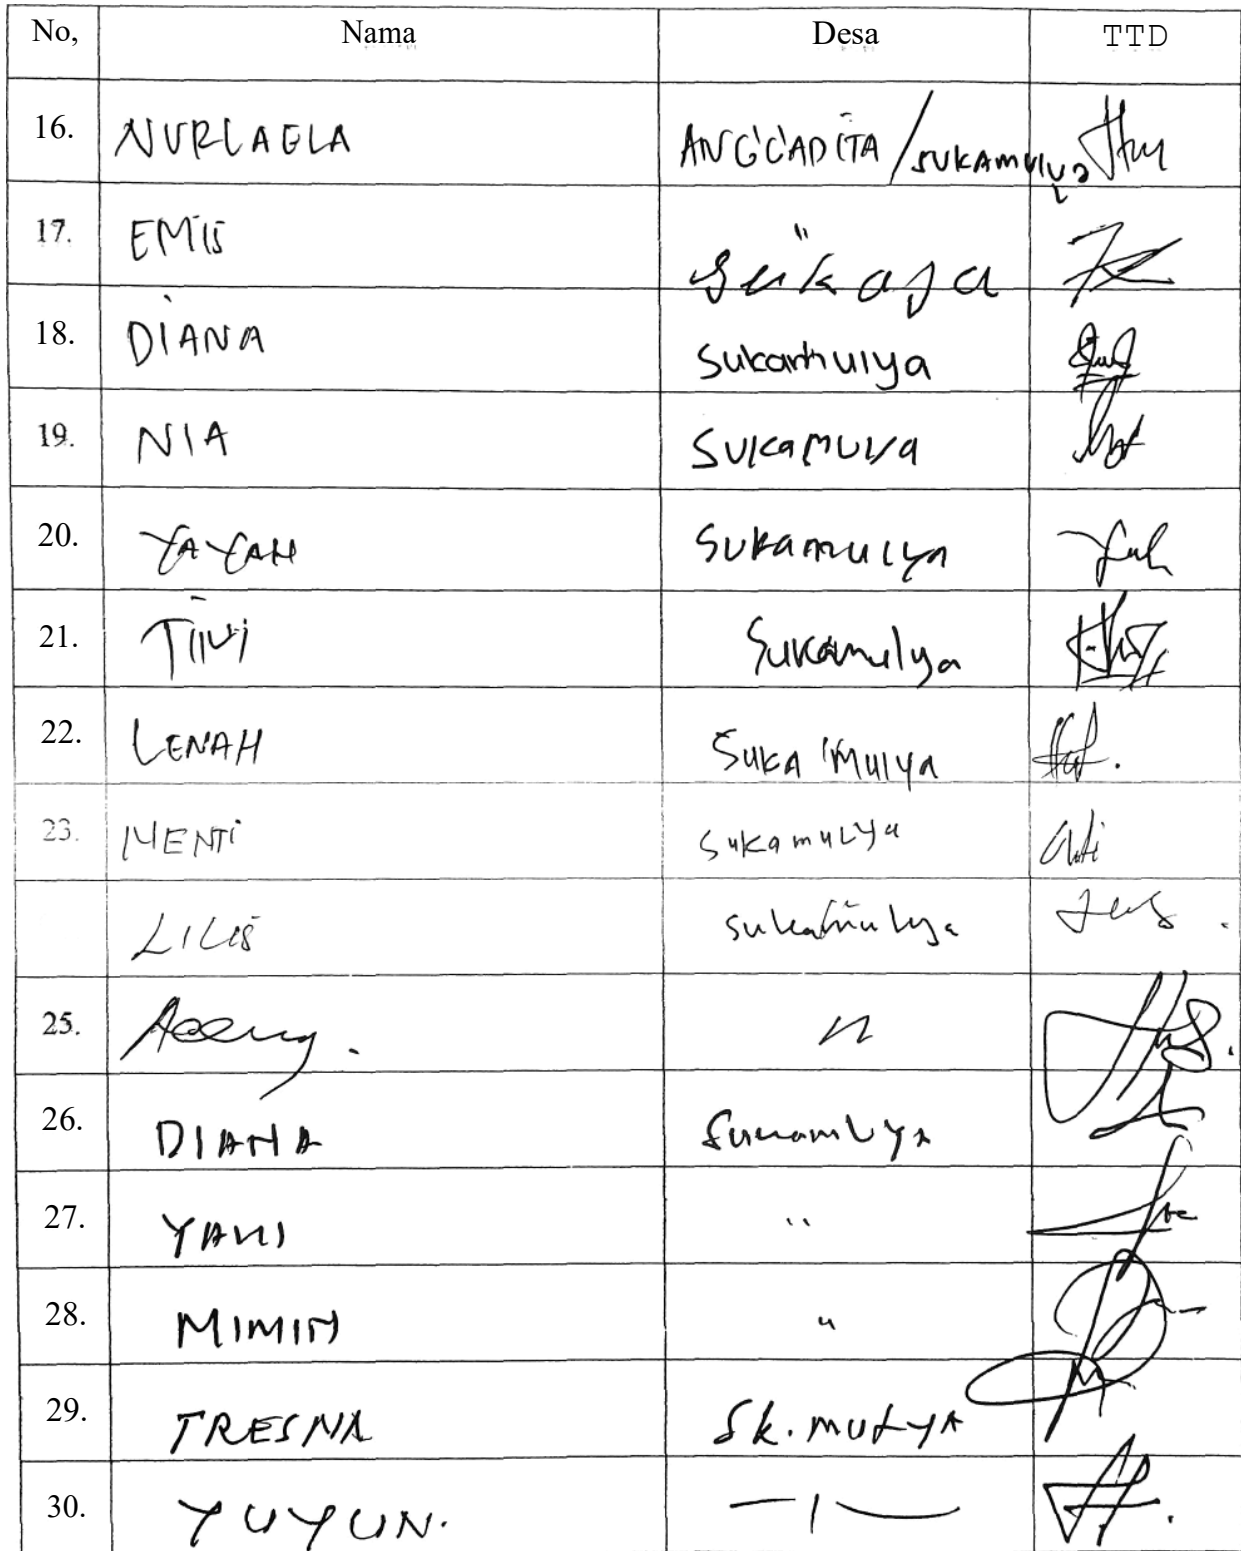 No, Nama Desa TTD
16. NURLAELA ANGGADITA / SUKAMULYA
17. EMIS
18. DIANA Sukamulya
19. NIA SUKAMULYA
20. YAYAH SUKAMULYA
21. Sukamulya
22. LENAH SUKA MULYA
23. MENTI SUKAMULYA
LILIS Sukamulya
25. Aceng.
26. DIANA Sukamulya
27. YANI "
28. MIMIN "
29. TRESNA SK. MULYA
30. YUYUN. —I—